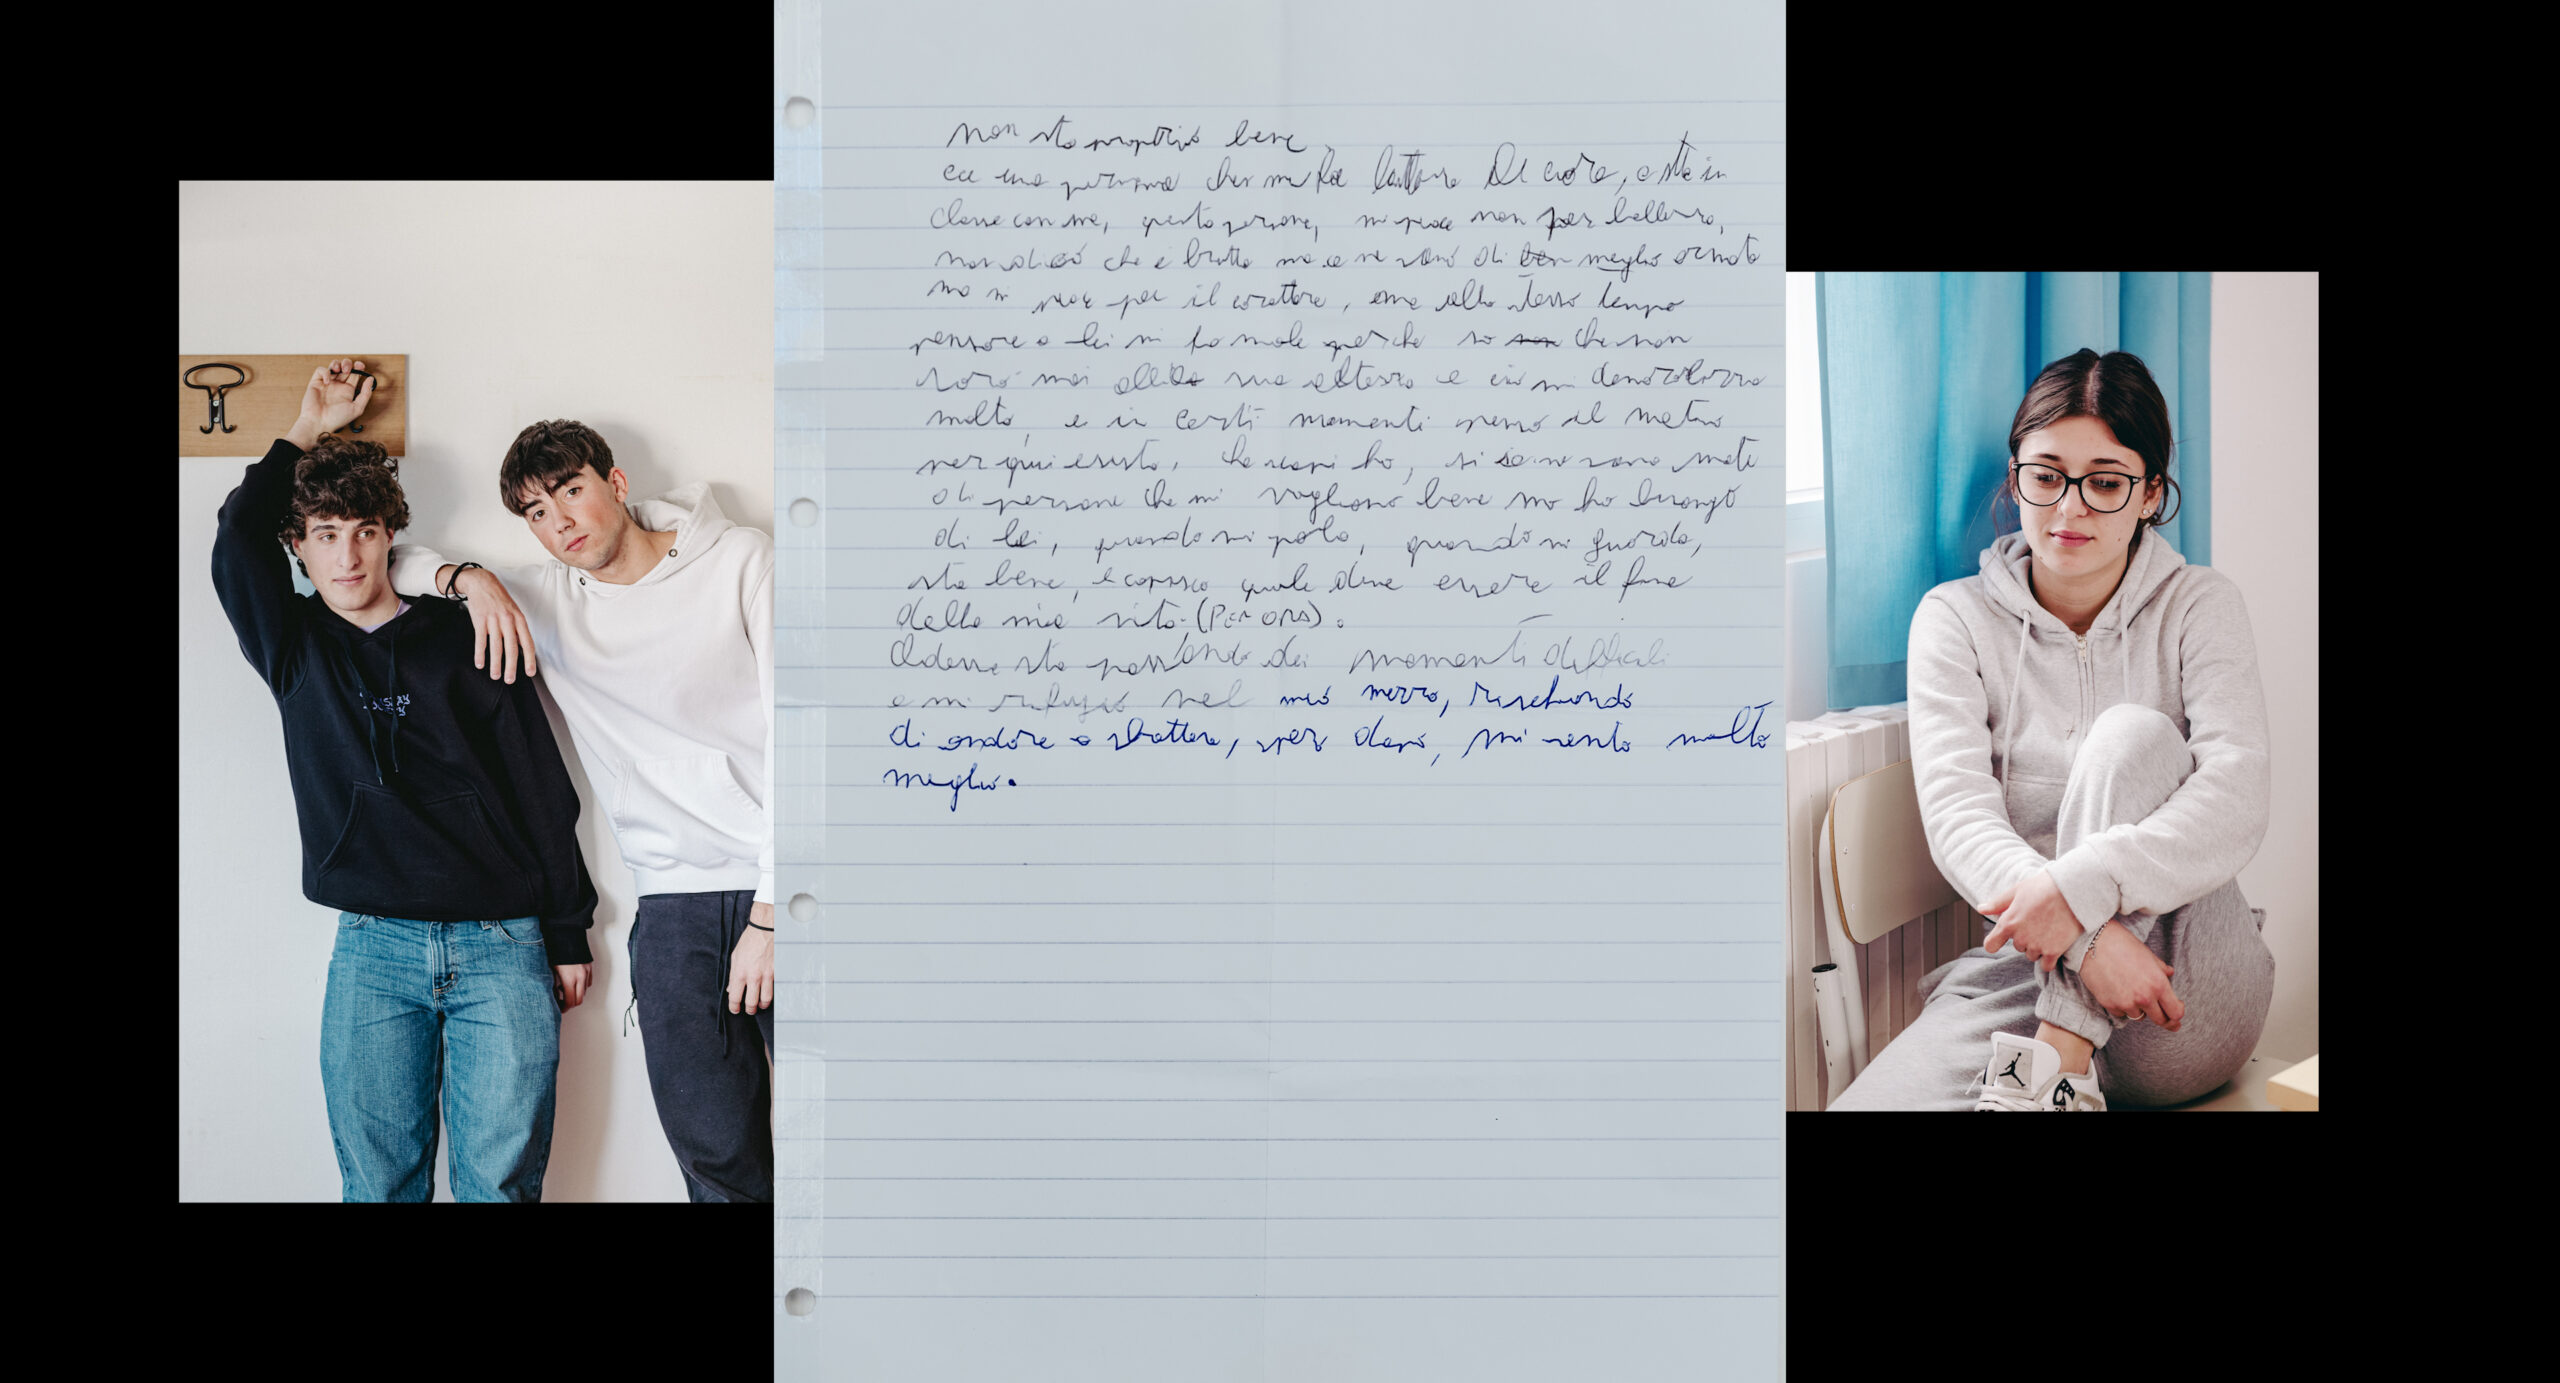 non sto propttio bene
cee una persona che mi fa battere Il cuore, e sta in
classe con me, questa persona, mi piace non per bellezza,
non dico che è brutta ma ce ne sono di ben meglio
ma mi piace per il carattere, ma allo stesso tempo
pensare a lei mi fa male perche so non che non
sarò mai alla sua altezza e ciò mi demoralizza
molto, e in certi momenti penso al
per qui esisto, che scopi ho, si se ne sono
di persone che mi vogliono bene ma ho bisogno
di lei, quando mi parla, quando mi guarda,
sto bene, e capisco quale deve essere il fine
della mia vita. (PER ORA).
Adesso sto passando dei momenti difficali
e mi rifugio nel mio mezzo, rischiando
di andare a sbattere, per dopo, mi sento molto
meglio.